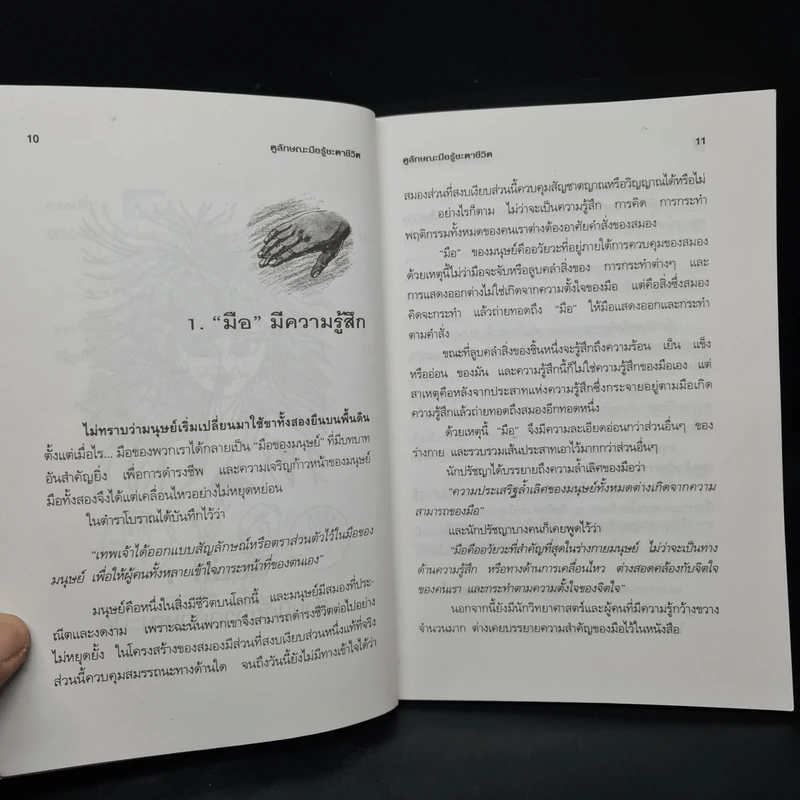 10
ดูลักษณะมือรู้ชะตาชีวิต
1. “มือ” มีความรู้สึก
ไม่ทราบว่ามนุษย์เริ่มเปลี่ยนมาใช้ขาทั้งสองยืนบนพื้นดิน
ตั้งแต่เมื่อไร... มือของพวกเราได้กลายเป็น “มือของมนุษย์” ที่มีบทบาท
อันสำคัญยิ่ง เพื่อการดำรงชีพ และความเจริญก้าวหน้าของมนุษย์
มือทั้งสองจึงได้แต่เคลื่อนไหวอย่างไม่หยุดหย่อน
ในตำราโบราณได้บันทึกไว้ว่า
“เทพเจ้าได้ออกแบบสัญลักษณ์หรือตราส่วนตัวไว้ในมือของ
มนุษย์ เพื่อให้ผู้คนทั้งหลายเข้าใจภาระหน้าที่ของตนเอง”
มนุษย์คือหนึ่งในสิ่งมีชีวิตบนโลกนี้ และมนุษย์มีสมองที่ประ-
ณีตและงดงาม เพราะฉะนั้นพวกเขาจึงสามารถดำรงชีวิตต่อไปอย่าง
ไม่หยุดยั้ง ในโครงสร้างของสมองมีส่วนที่สงบเงียบส่วนหนึ่งแท้ที่จริง
ส่วนนี้ควบคุมสมรรถนะทางด้านใด จนถึงวันนี้ยังไม่มีทางเข้าใจได้ว่า
ดูลักษณะมือรู้ชะตาชีวิต
11
สมองส่วนที่สงบเงียบส่วนนี้ควบคุมสัญชาตญาณหรือวิญญาณได้หรือไม่
อย่างไรก็ตาม ไม่ว่าจะเป็นความรู้สึก การคิด การกระทำ
พฤติกรรมทั้งหมดของคนเราต่างต้องอาศัยคำสั่งของสมอง
“มือ” ของมนุษย์คืออวัยวะที่อยู่ภายใต้การควบคุมของสมอง
ด้วยเหตุนี้ไม่ว่ามือจะจับหรือลูบคลำสิ่งของ การกระทำต่างๆ และ
การแสดงออกต่างไม่ใช่เกิดจากความตั้งใจของมือ แต่คือสิ่งซึ่งสมอง
คิดจะกระทำ แล้วถ่ายทอดถึง “มือ” ให้มือแสดงออกและกระทำ
ตามคำสั่ง
ขณะที่ลูบคลำสิ่งของชิ้นหนึ่งจะรู้สึกถึงความร้อน เย็น แข็ง
หรืออ่อน ของมัน และความรู้สึกนี้ก็ไม่ใช่ความรู้สึกของมือเอง แต่
สาเหตุคือหลังจากประสาทแห่งความรู้สึกซึ่งกระจายอยู่ตามมือเกิด
ความรู้สึกแล้วถ่ายทอดถึงสมองอีกทอดหนึ่ง
ด้วยเหตุนี้ “มือ” จึงมีความละเอียดอ่อนกว่าส่วนอื่นๆ ของ
ร่างกาย และรวบรวมเส้นประสาทเอาไว้มากกว่าส่วนอื่นๆ
นักปรัชญาได้บรรยายถึงความล้ำเลิศของมือว่า
“ความประเสริฐล้ำเลิศของมนุษย์ทั้งหมดต่างเกิดจากความ
สามารถของมือ”
และนักปรัชญาบางคนก็เคยพูดไว้ว่า
“มือคืออวัยวะที่สำคัญที่สุดในร่างกายมนุษย์ ไม่ว่าจะเป็นทาง
ด้านความรู้สึก หรือทางด้านการเคลื่อนไหว ต่างสอดคล้องกับจิตใจ
ของคนเรา และกระทำตามความตั้งใจของจิตใจ”
นอกจากนี้ยังมีนักวิทยาศาสตร์และผู้คนที่มีความรู้กว้างขวาง
จำนวนมาก ต่างเคยบรรยายความสำคัญของมือไว้ในหนังสือ